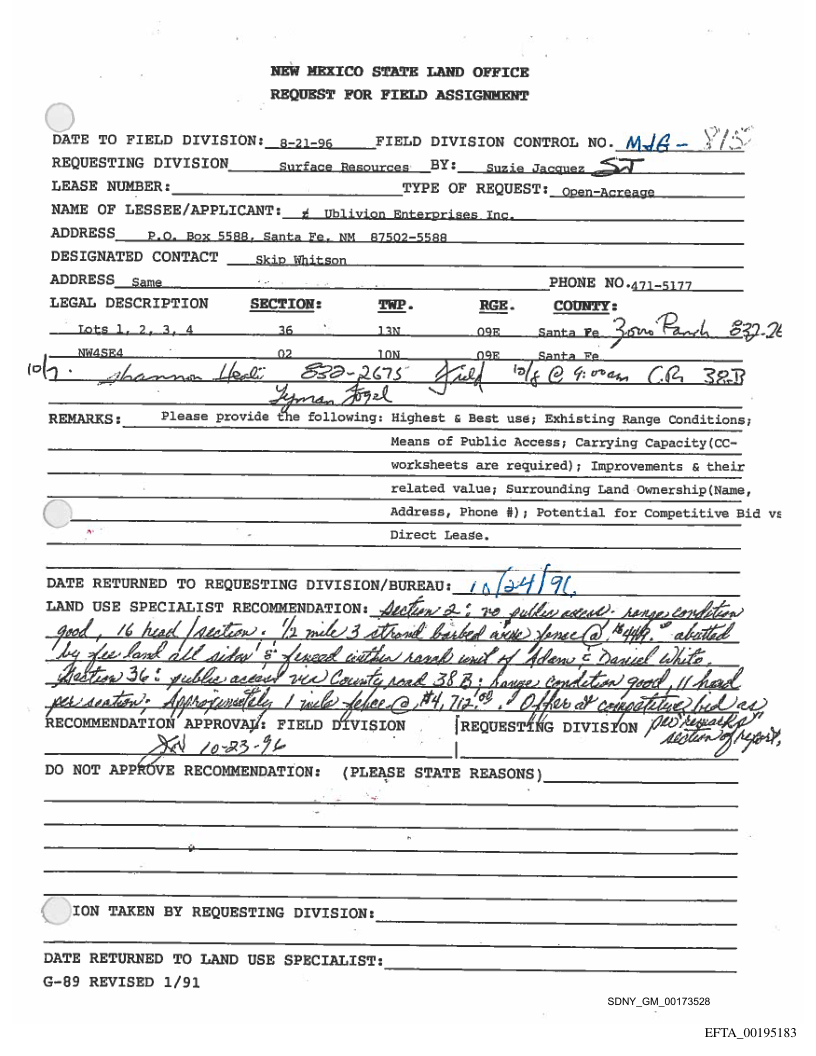 NEW MEXICO STATE LAND OFFICE
REQUEST FOR FIELD ASSIGNMENT
DATE TO FIELD DIVISION: 8-21-96 FIELD DIVISION CONTROL NO. MJG - 815
REQUESTING DIVISION Surface Resources BY: Suzie Jacquez SJ
LEASE NUMBER: TYPE OF REQUEST: Open-Acreage
NAME OF LESSEE/APPLICANT: Ublivion Enterprises Inc.
ADDRESS P.O. Box 5588, Santa Fe, NM 87502-5588
DESIGNATED CONTACT Skip Whitson
ADDRESS Same PHONE NO. 471-5177
LEGAL DESCRIPTION SECTION: TWP. RGE. COUNTY:
Lots 1, 2, 3, 4 36 13N 09E Santa Fe Zorro Ranch 832-26
NW4SE4 02 10N 09E Santa Fe
10/7 Shannon 832-2675 Field 10/8 @ 9:00am C.R. 38B
REMARKS: Please provide the following: Highest & Best use; Exhisting Range Conditions;
Means of Public Access; Carrying Capacity(CC-
worksheets are required); Improvements & their
related value; Surrounding Land Ownership(Name,
Address, Phone #); Potential for Competitive Bid vs
Direct Lease.
DATE RETURNED TO REQUESTING DIVISION/BUREAU: 10/24/96
LAND USE SPECIALIST RECOMMENDATION: Section 2: no public access. range condition
good, 16 head/section. 1/2 mile 3 strand barbed wire fence @ abutted
by fee land all sides & fenced within ranch unit of Adam & Daniel White.
Section 36: public access via County road 38 B; range condition good, 11 head
per section. Approximately 1 mile fence @ $4,712.00. Offer at competitive bid as
per "remarks"
section of report.
RECOMMENDATION APPROVAL: FIELD DIVISION REQUESTING DIVISION
10-23-96
DO NOT APPROVE RECOMMENDATION: (PLEASE STATE REASONS)
ION TAKEN BY REQUESTING DIVISION:
DATE RETURNED TO LAND USE SPECIALIST:
G-89 REVISED 1/91
SDNY_GM_00173528
EFTA_00195183